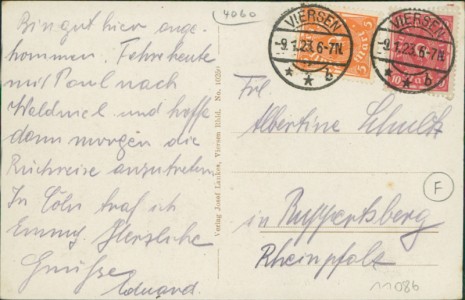 Bin gut hier ange-
kommen. Fahre heute
mit Paul nach
Waldniel und hoffe
dann morgen die
Rückreise anzutreten
In Cöln traf ich
Emmy. Herzliche
Grüsse
Eduard.
Verlag Josef Lankes, Viersen Rhld. No.
4060
VIERSEN
-9.1.23.6-7N.
* * b
VIERSEN
-9.1.23.6-7N.
* * b
5 Mark 5
10
Frl
Albertine Schultz
in Ruppertsberg
Rheinpfalz
F
11086